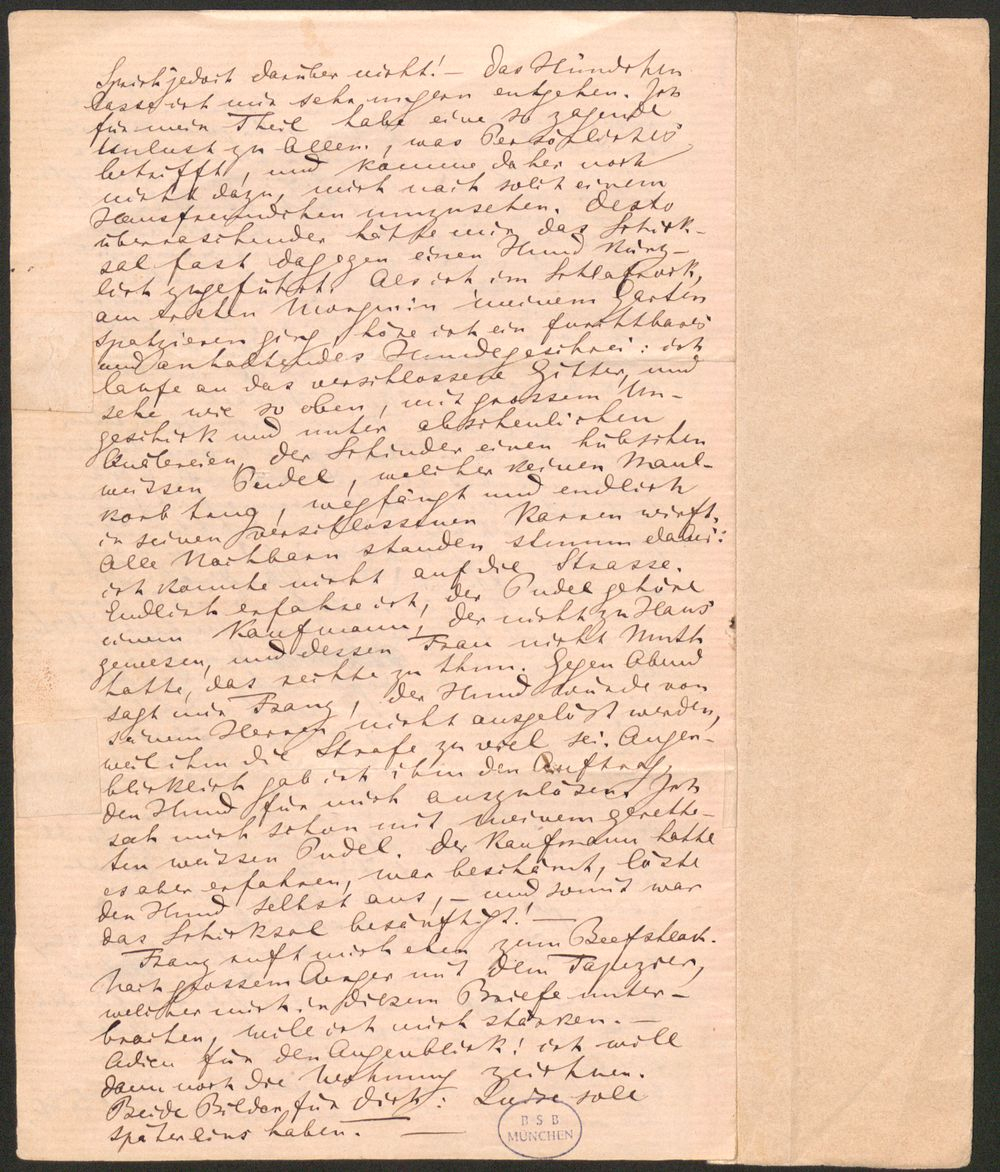 Sprich jedoch darüber nicht! — Das Hündchen
lasse ich mir sehr ungern entgehen. Ich
für mein Theil habe eine so zagende
Unlust zu Allem, was Persönliches
betrifft, und komme daher noch
nicht dazu, mich nach solch einem
Hausfreundchen umzusehen. Desto
überraschender hätte mir das Schick-
sal fast dagegen einen Hund kürz-
lich zugeführt. Als ich im Schlafrock,
am ersten Morgen in meinem Garten
spatzieren ging, höre ich ein furchtbares
und anhaltendes Hundegeschrei: ich
laufe an das verschlossene Gitter, und
sehe wie so eben, mit grossem Un-
geschick und unter abscheulichen
Quälereien, der Schinder einen hübschen
weissen Pudel, welcher keinen Maul-
korb trug, wegfängt und endlich
in seinen verschlossenen Karren wirft.
Alle Nachbarn standen stumm dabei:
ich konnte nicht auf die Strasse.
Endlich erfahre ich, der Pudel gehöre
einem Kaufmann, der nicht zu Haus
gewesen, und dessen Frau nicht Muth
hatte, das rechte zu thun. Gegen Abend
sagt mir Franz, der Hund würde von
seinem Herren nicht ausgelöst werden,
weil ihm die Strafe zu viel sei. Augen-
blicklich gab ich ihm den Auftrag,
den Hund für mich auszulösen. Ich
sah mich schon mit meinem gerette-
ten weissen Pudel. Der Kaufmann hatte
es aber erfahren, war beschämt, löste
den Hund selbst aus, — und somit war
das Schicksal besänftigt! —
Franz ruft mich eben zum Beefsteak.
Nach grossem Aerger mit dem Tapezier,
welcher mich in diesem Briefe unter-
brochen, will ich mich stärken. —
Adieu für den Augenblick! ich will
dann noch die Wohnung zeichnen.
Beide Bilder für Dich: Luise soll
später eins haben. —
B S B
MÜNCHEN